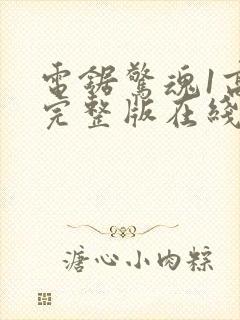 電鋸驚魂1高
完整版在綫
溏心小肉粽